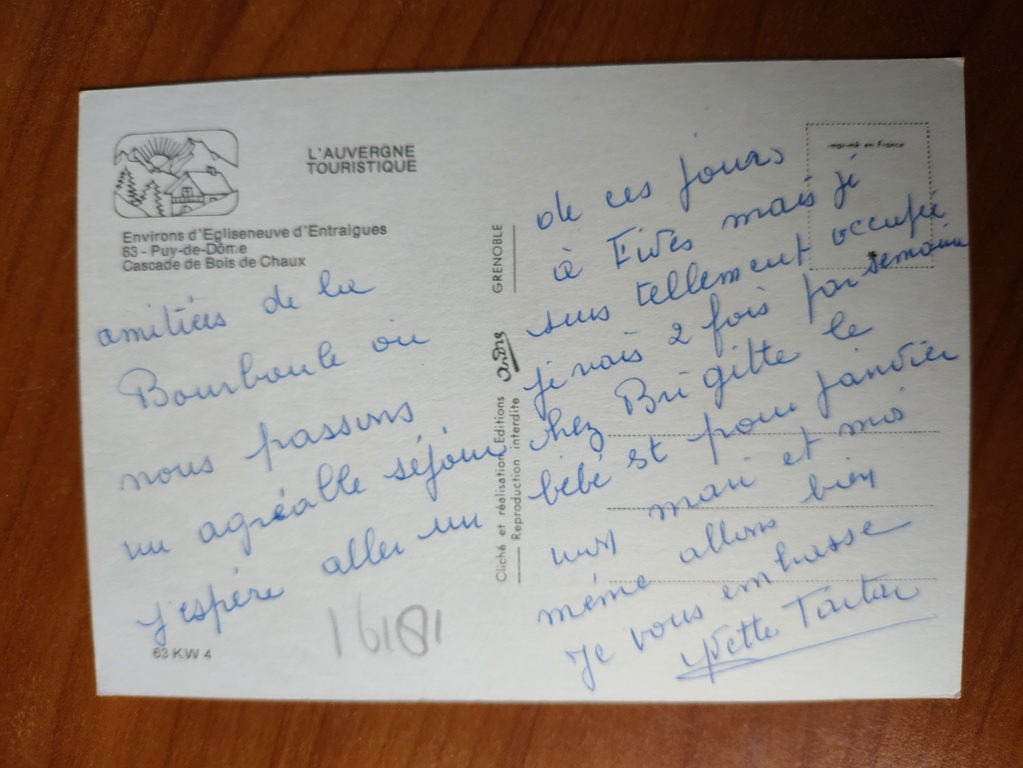 L'AUVERGNE
TOURISTIQUE
Environs d'Egliseneuve d'Entraigues
63 - Puy-de-Dôme
Cascade de Bois de Chaux
amitiées de la
Bourboule où
nous passons
un agréable séjour
j'espère aller un
16181
63 KW 4
GRENOBLE
André
Cliché et réalisation Editions
Reproduction interdite
Imprimé en France
de ces jours
à Fives mais je
suis tellement occupée
je vais 2 fois par semaine
chez Brigitte le
bébé est pour janvier
mon mari et moi
même allons bien
Je vous embrasse
Yvette